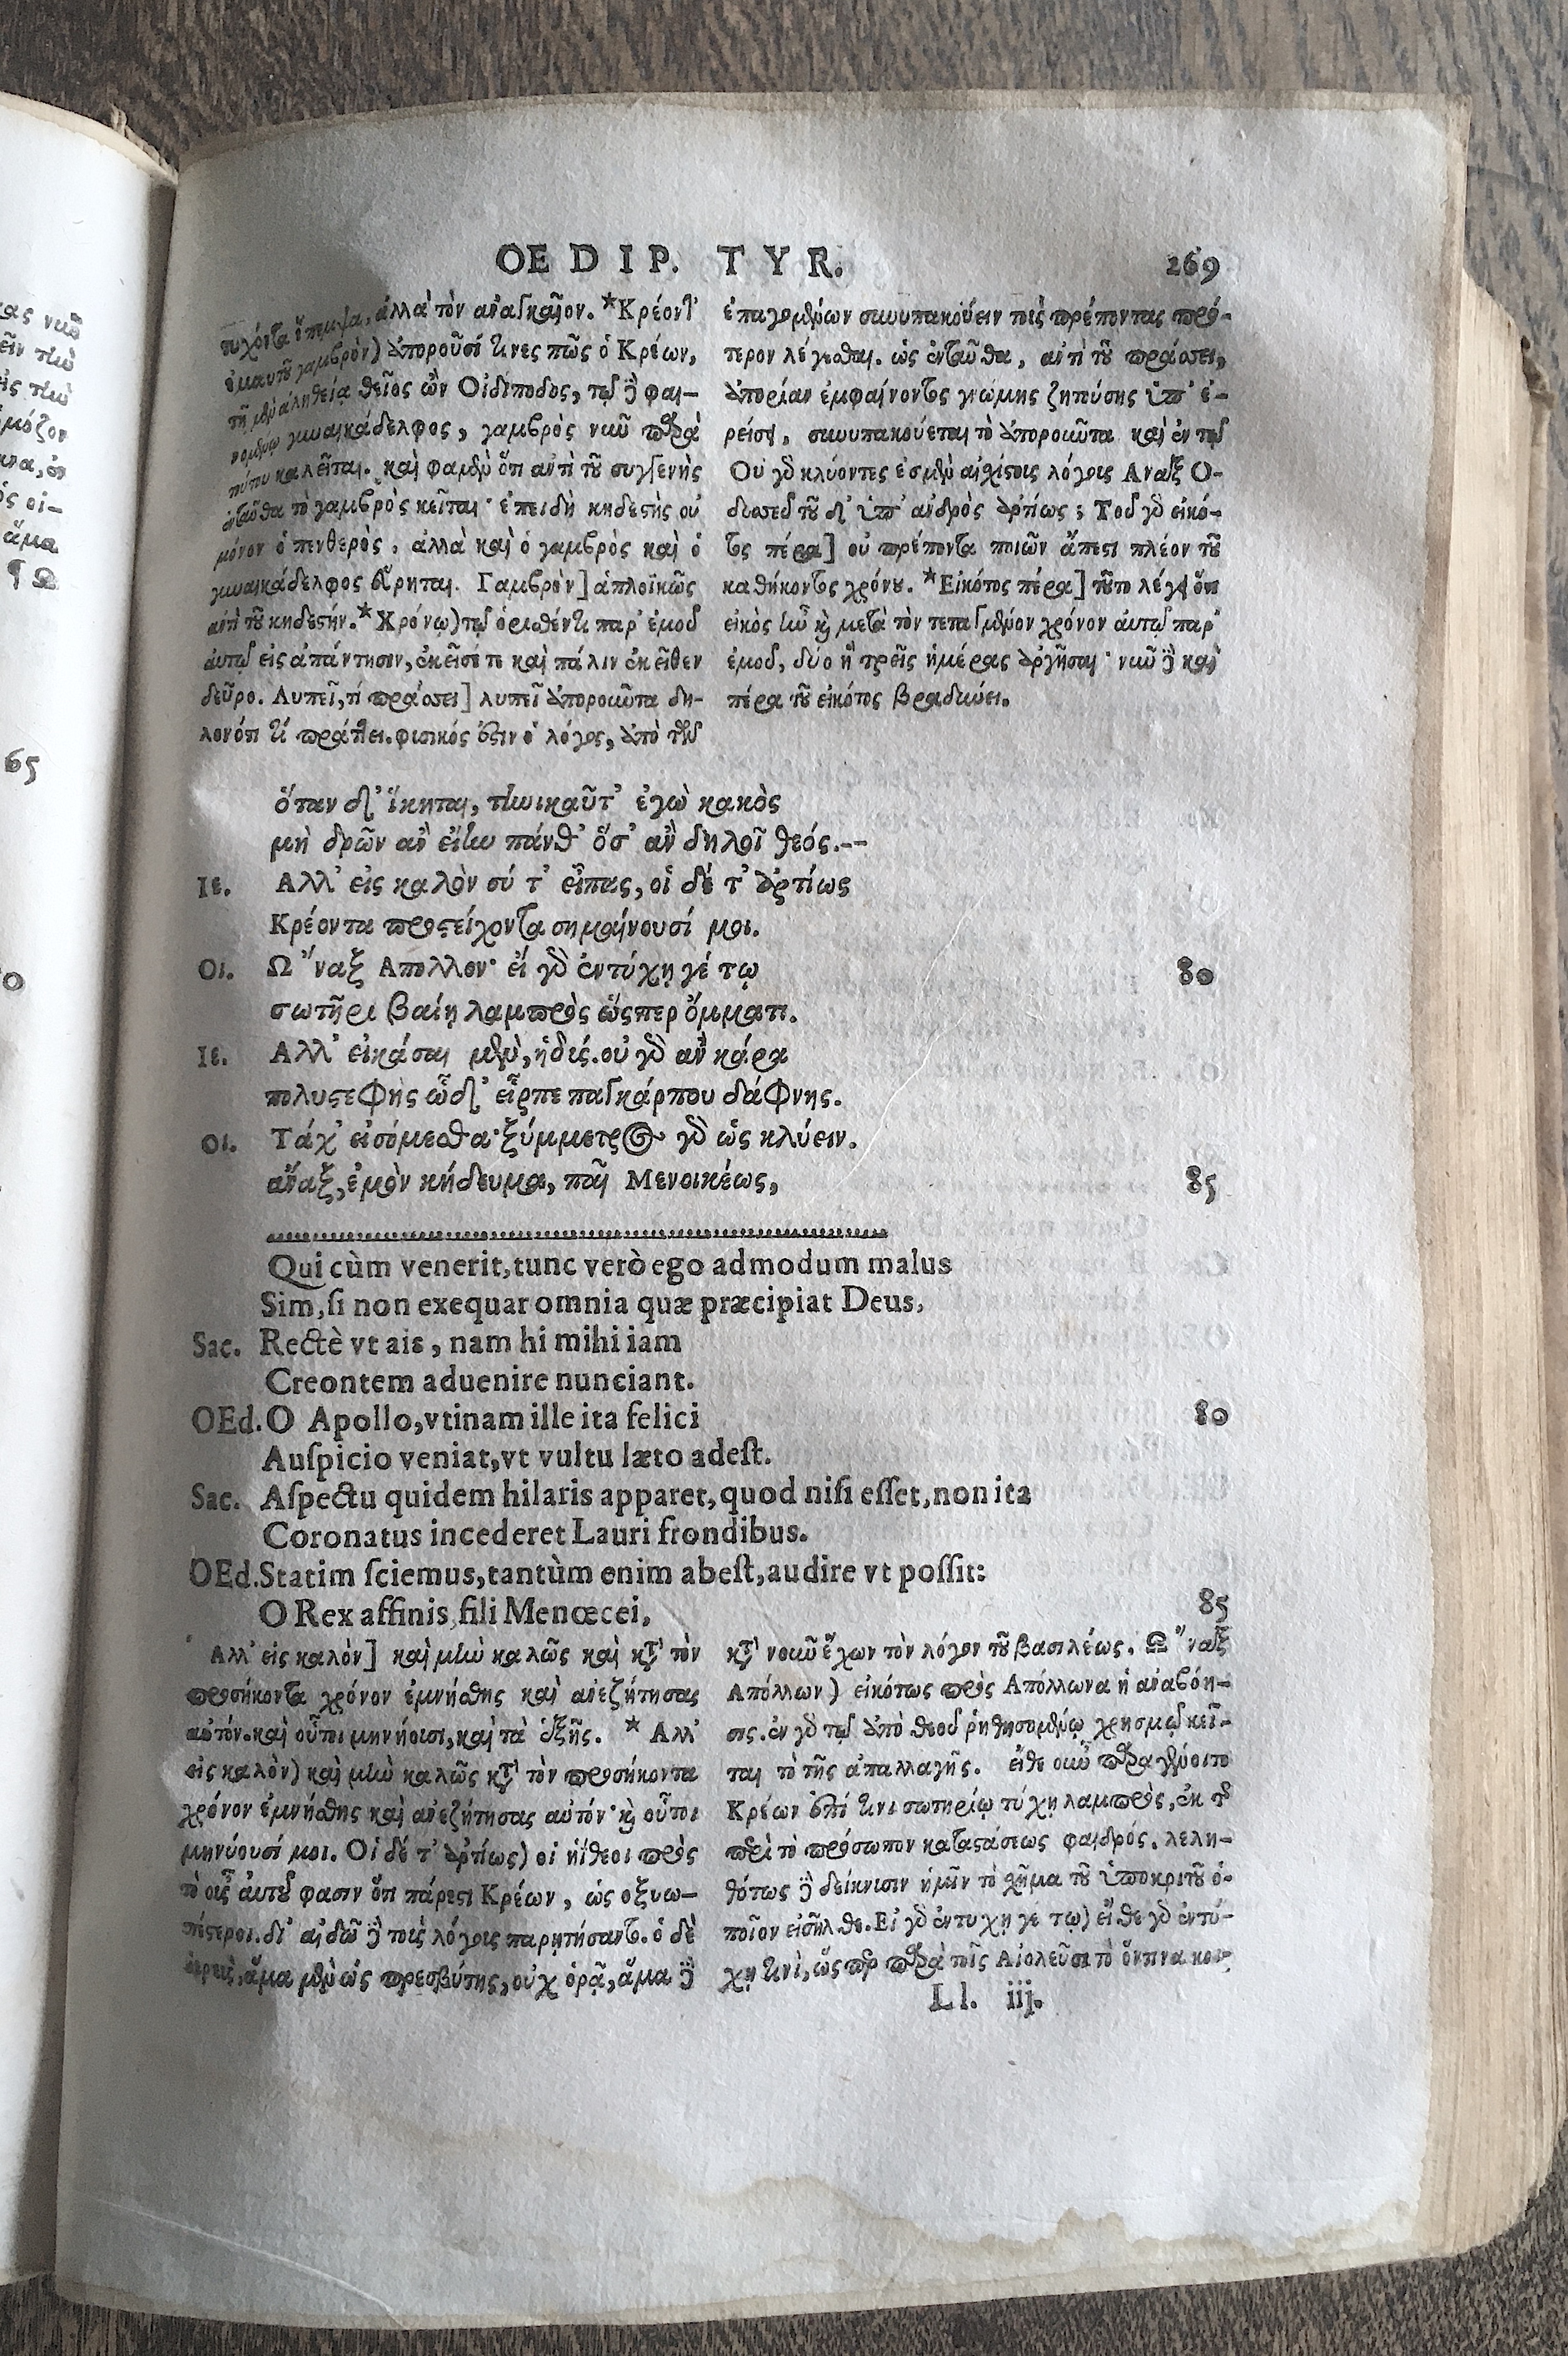 OEDIP. TYR. 269
ἀλλὰ τὸν ἀναγκαῖον. *Κρέοντ'
ἐμαυτοῦ γαμβρὸν) ἀποροῦσί τινες πῶς ὁ Κρέων,
τῇ μὲν ἀληθείᾳ θεῖος ὢν Οἰδίποδος, τῷ δὲ φαι-
νομένῳ γυναικάδελφος, γαμβρὸς νῦν παρὰ
τούτου καλεῖται. καὶ φαμὲν ὅτι ἀντὶ τοῦ συγγενὴς
ἐνταῦθα τὸ γαμβρὸς κεῖται· ἐπειδὴ κηδεστὴς οὐ
μόνον ὁ πενθερὸς, ἀλλὰ καὶ ὁ γαμβρὸς καὶ ὁ
γυναικάδελφος εἴρηται. Γαμβρὸν] ἁπλοϊκῶς
ἀντὶ τοῦ κηδεστήν.*Χρόνῳ) τῷ ὁρισθέντι παρ' ἐμοῦ
αὐτῷ εἰς ἀπάντησιν, ἐκεῖσέ τε καὶ πάλιν ἐκεῖθεν
δεῦρο. Λυπεῖ, τί πράσσει] λυπεῖ ἀποροῦντα δη-
λονότι τί πράττει. φυσικός ἐστιν ὁ λόγος, ἀπὸ τῶν
ἐπαγομένων συνυπακούειν τοῖς πρέποντας πρό-
τερον λέγεσθαι. ὡς ἐνταῦθα, ἀντὶ τοῦ πράσσει,
ἀπορίαν ἐμφαίνοντος γνώμης ζητούσης ὑπ' ἐ-
ρείσῃ, συνυπακούεται τὸ ἀποροῦντα καὶ ἐν τῷ
Οὐ γὰρ κλύοντες ἐσμὲν αἰχίστοις λόγοις Αναξ Ο-
δυσσεῦ τοῦ δ' ὑπ' ἀνδρὸς ἀρτίως; Τοῦ γὰρ εἰκό-
τος πέρα] οὐ πρέποντα ποιῶν ἄπεστι πλέον τοῦ
καθήκοντος χρόνου. *Εἰκότος πέρα] τοῦτο λέγει ὅτι
εἰκὸς ἦν καὶ μετὰ τὸν τεταγμένον χρόνον αὐτῷ παρ'
ἐμοῦ, δύο ἢ τρεῖς ἡμέρας ἀργῆσαι· νῦν δὲ καὶ
πέρα τοῦ εἰκότος βραδύνει.
ὅταν δ' ἵκηται, τηνικαῦτ' ἐγὼ κακὸς
μὴ δρῶν ἂν εἴην πάνθ' ὅσ' ἂν δηλοῖ θεός.--
Ιε. Αλλ' εἰς καλὸν σύ τ' εἶπας, οἵ δέ τ' ἀρτίως
Κρέοντα προςείχοντα σημαίνουσί μοι.
Οι. Ω ῎ναξ Απολλον· εἰ γὰρ ἐν τύχῃ γέ τῳ 80
σωτῆρι βαίη λαμπρὸς ὥςπερ ὄμματι.
Ιε. Αλλ' εἰκάσαι μὲν, ἡδύς. οὐ γὰρ ἂν κάρα
πολυστεφὴς ὧδ' εἷρπε παγκάρπου δάφνης.
Οι. Τάχ' εἰσόμεσθα· ξύμμετρος γὰρ ὡς κλύειν.
ἄναξ, ἐμὸν κήδευμα, παῖ Μενοικέως, 85
Qui cùm venerit, tunc verò ego admodum malus
Sim, ſi non exequar omnia quæ præcipiat Deus,
Sac. Rectè vt ais, nam hi mihi iam
Creontem aduenire nunciant.
OEd. O Apollo, vtinam ille ita felici 80
Auſpicio veniat, vt vultu læto adeſt.
Sac. Aſpectu quidem hilaris apparet, quod niſi eſſet, non ita
Coronatus incederet Lauri frondibus.
OEd. Statim ſciemus, tantùm enim abeſt, audire vt poſſit:
O Rex affinis, fili Menœcei, 85
Αλλ' εἰς καλὸν] καὶ μὴν καλῶς καὶ κατὰ τὸν
προσήκοντα χρόνον ἐμνήσθης καὶ ἀνεζήτησας
αὐτόν. καὶ οὗτοι μηνύουσι, καὶ τὰ ἑξῆς. * Αλλ'
εἰς καλὸν) καὶ μὴν καλῶς κατὰ τὸν προσήκοντα
χρόνον ἐμνήσθης καὶ ἀνεζήτησας αὐτόν· καὶ οὗτοι
μηνύουσί μοι. Οἱ δέ τ' ἀρτίως) οἱ ἠΐθεοι πρὸς
τὸ οὖς αὐτοῦ φασιν ὅτι πάρεστι Κρέων, ὡς ὀξυω-
πέστεροι. δι' αἰδῶ δὲ τοῖς λόγοις παρῃτήσαντο. ὁ δὲ
ἱερεὺς, ἅμα μὲν ὡς πρεσβύτης, οὐχ ὁρᾷ, ἅμα δὲ
κατὰ νοῦν ἔχων τὸν λόγον τοῦ βασιλέως. Ω ῎ναξ
Απόλλων) εἰκότως πρὸς Απόλλωνα ἡ ἀναβόη-
σις. ἐν γὰρ τῷ ἀπὸ θεοῦ ῥηθησομένῳ χρησμῷ κεῖ-
ται τὸ τῆς ἀπαλλαγῆς. εἴθε οὖν παραγένοιτο
Κρέων ἐπί τινι σωτηρίῳ τύχῃ λαμπρὸς, ἐκ τῆς
περὶ τὸ πρόσωπον καταστάσεως φαιδρός. λελη-
θότως δὲ δείκνυσιν ἡμῖν τὸ σχῆμα τοῦ ὑποκριτοῦ ὁ-
ποῖον εἰσῆλθε. Εἰ γὰρ ἐν τύχῃ γέ τῳ) εἴθε γὰρ ἐν τύ-
χῃ τινὶ, ὥσπερ παρὰ τοῖς Αἰολεῦσι τὸ
Ll. iij.